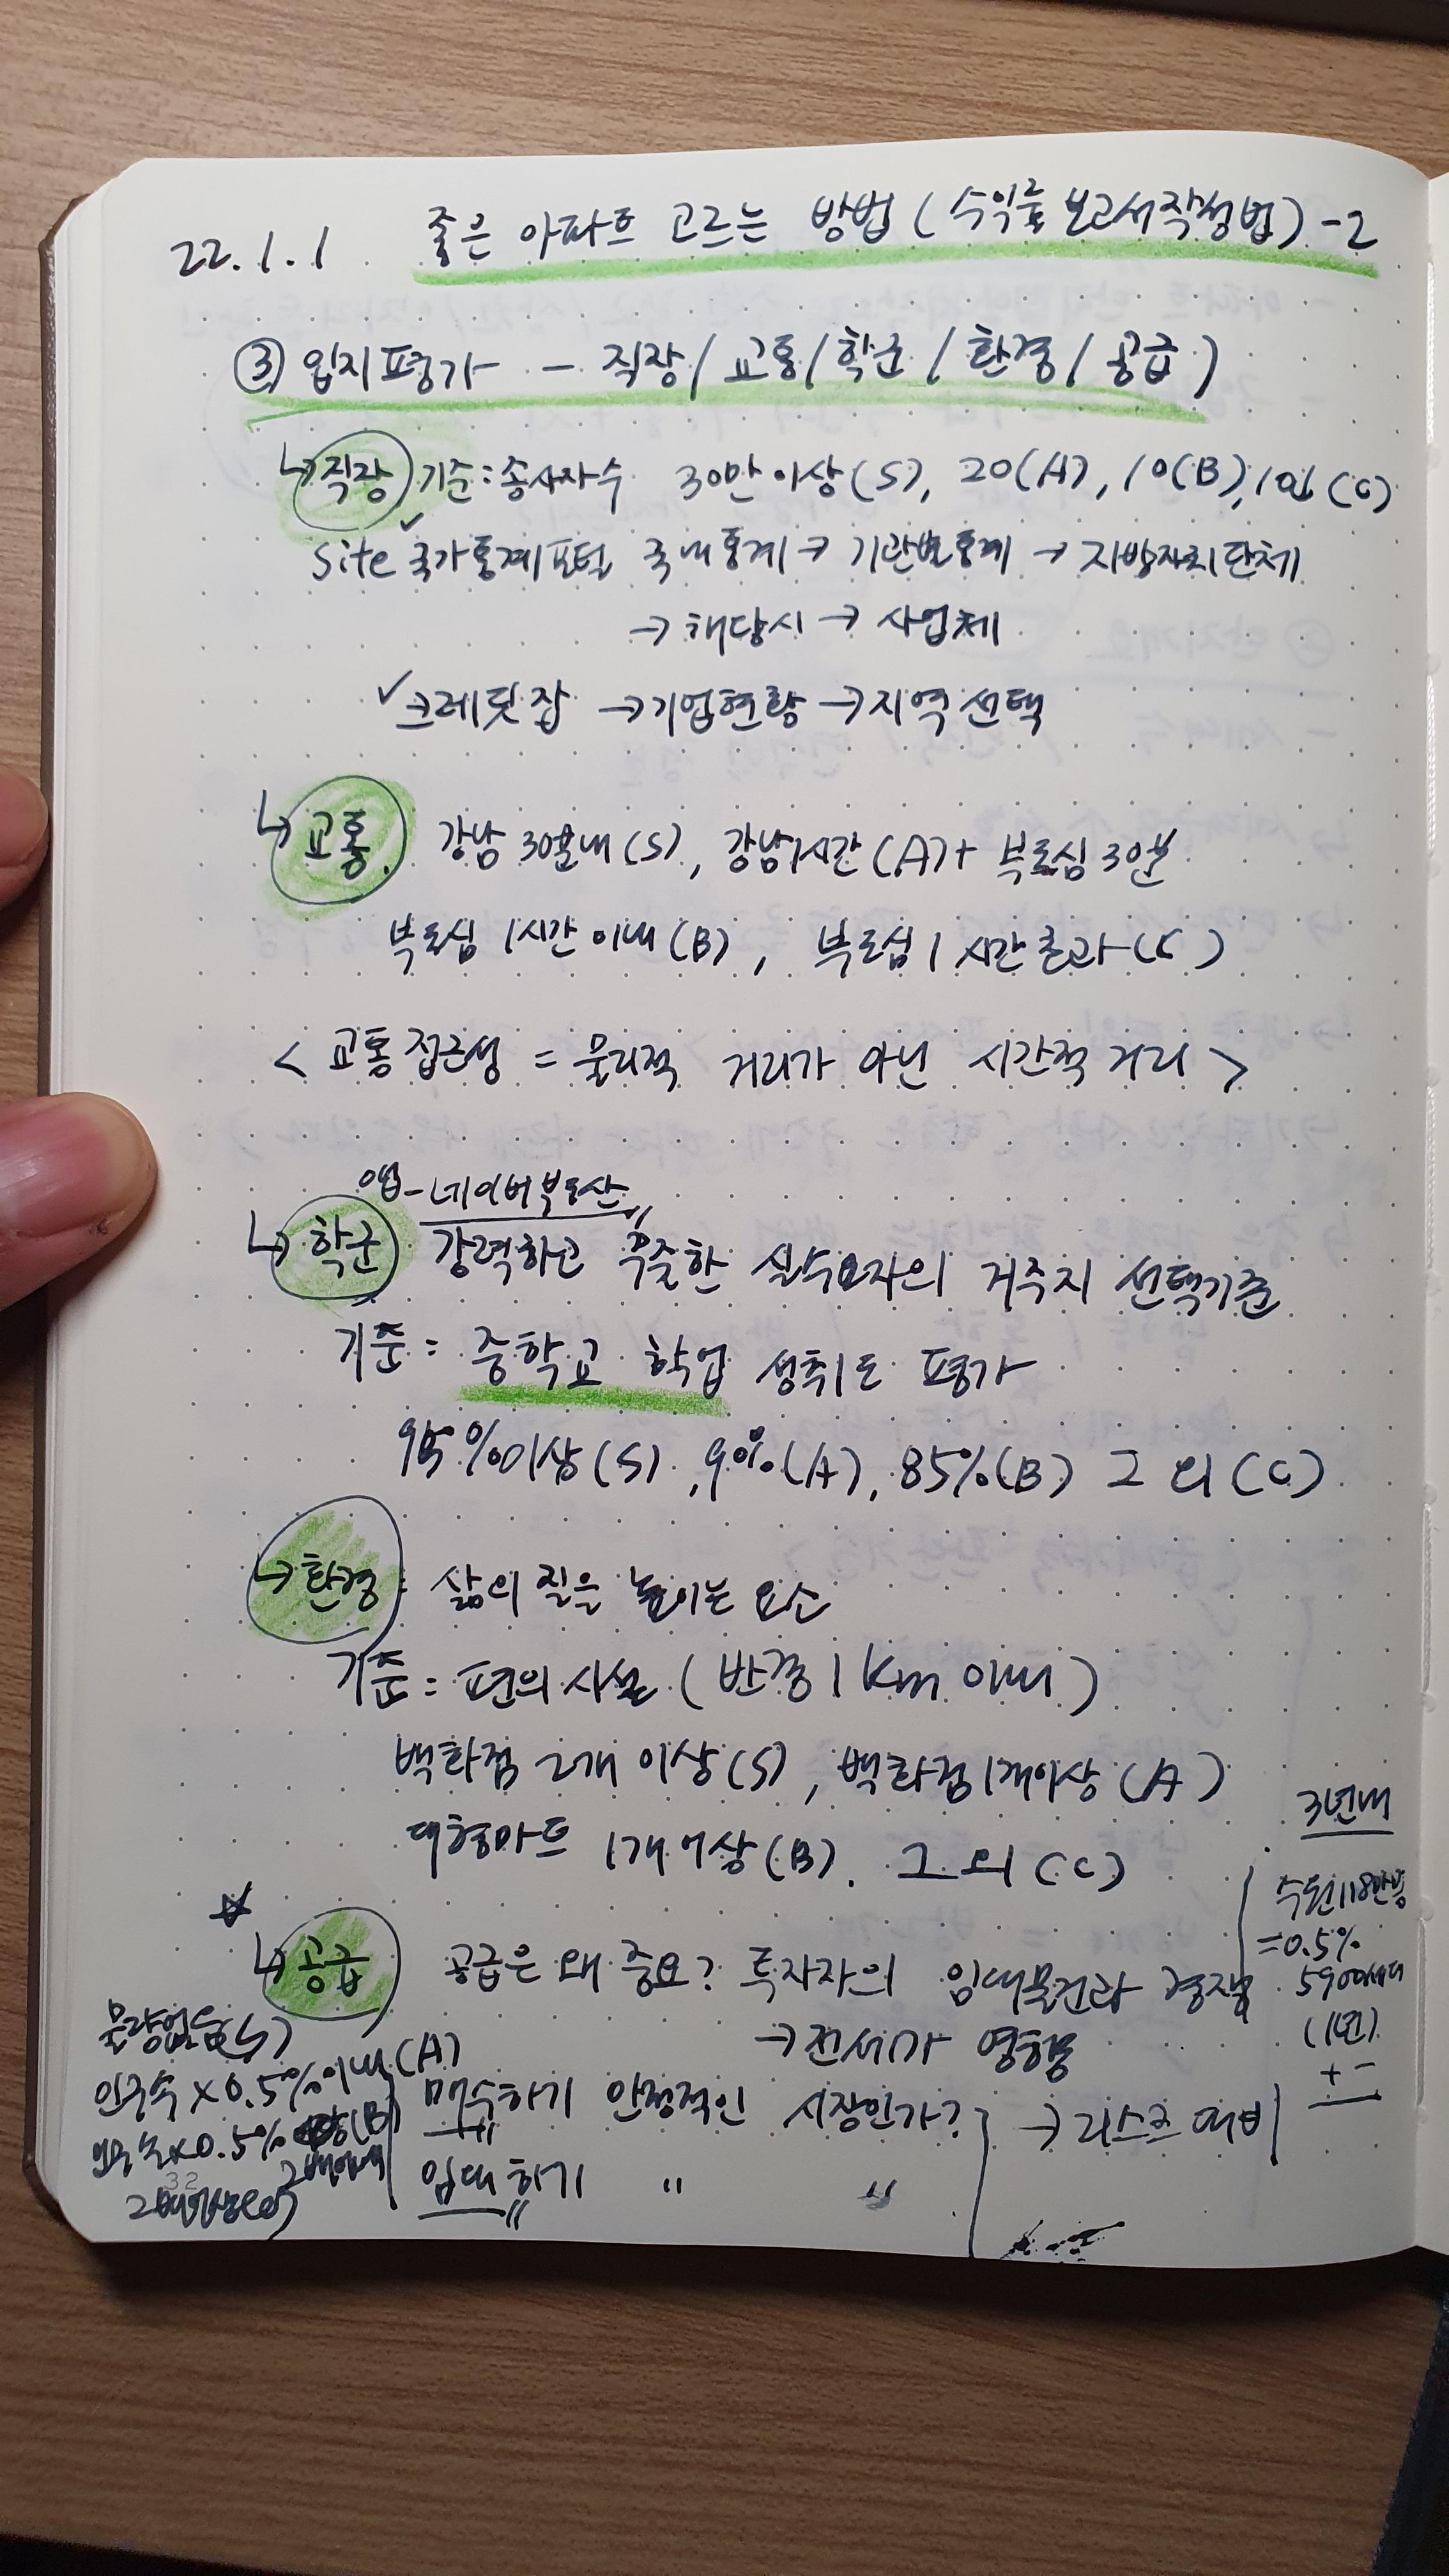 22.1.1 좋은 아파트 고르는 방법 (수익률보고서작성법) -2
③ 입지평가 - 직장/교통/학군/환경/공급)
↳ 직장 기준: 종사자수 30만이상(S), 20(A), 10(B), 10↓(C)
site ✓국가통계포털 국내통계 → 기관별통계 → 지방자치단체
→ 해당시 → 사업체
✓크레딧잡 → 기업현황 → 지역선택
↳ 교통. 강남 30분내(S), 강남1시간(A)+ 부도심30분
부도심 1시간이내(B), 부도심1시간초과(C)
< 교통접근성 = 물리적 거리가 아닌 시간적거리 >
앱-네이버부동산
↳ 학군 강력하고 꾸준한 실수요자의 거주지 선택기준
기준: 중학교 학업 성취도 평가
95%이상(S), 90%(A), 85%(B) 그 외(C)
↳ 환경: 삶의 질을 높이는 요소
기준: 편의시설 (반경 1km 이내)
백화점 2개 이상(S), 백화점1개이상(A)
대형마트 1개이상(B). 그 외(C)
☆
↳ 공급 공급은 왜 중요? 투자자의 임대물건과 경쟁
→ 전세가 영향
매수하기 안정적인 시장인가?
임대하기 〃 〃
→ 리스크 대비
물량없음(S)
인구수×0.5%이내(A)
인구수×0.5% (B)
2배이내
2배이상(C)
32
3년내
수원118만명
=0.5%
5900세대
(1년)
+-